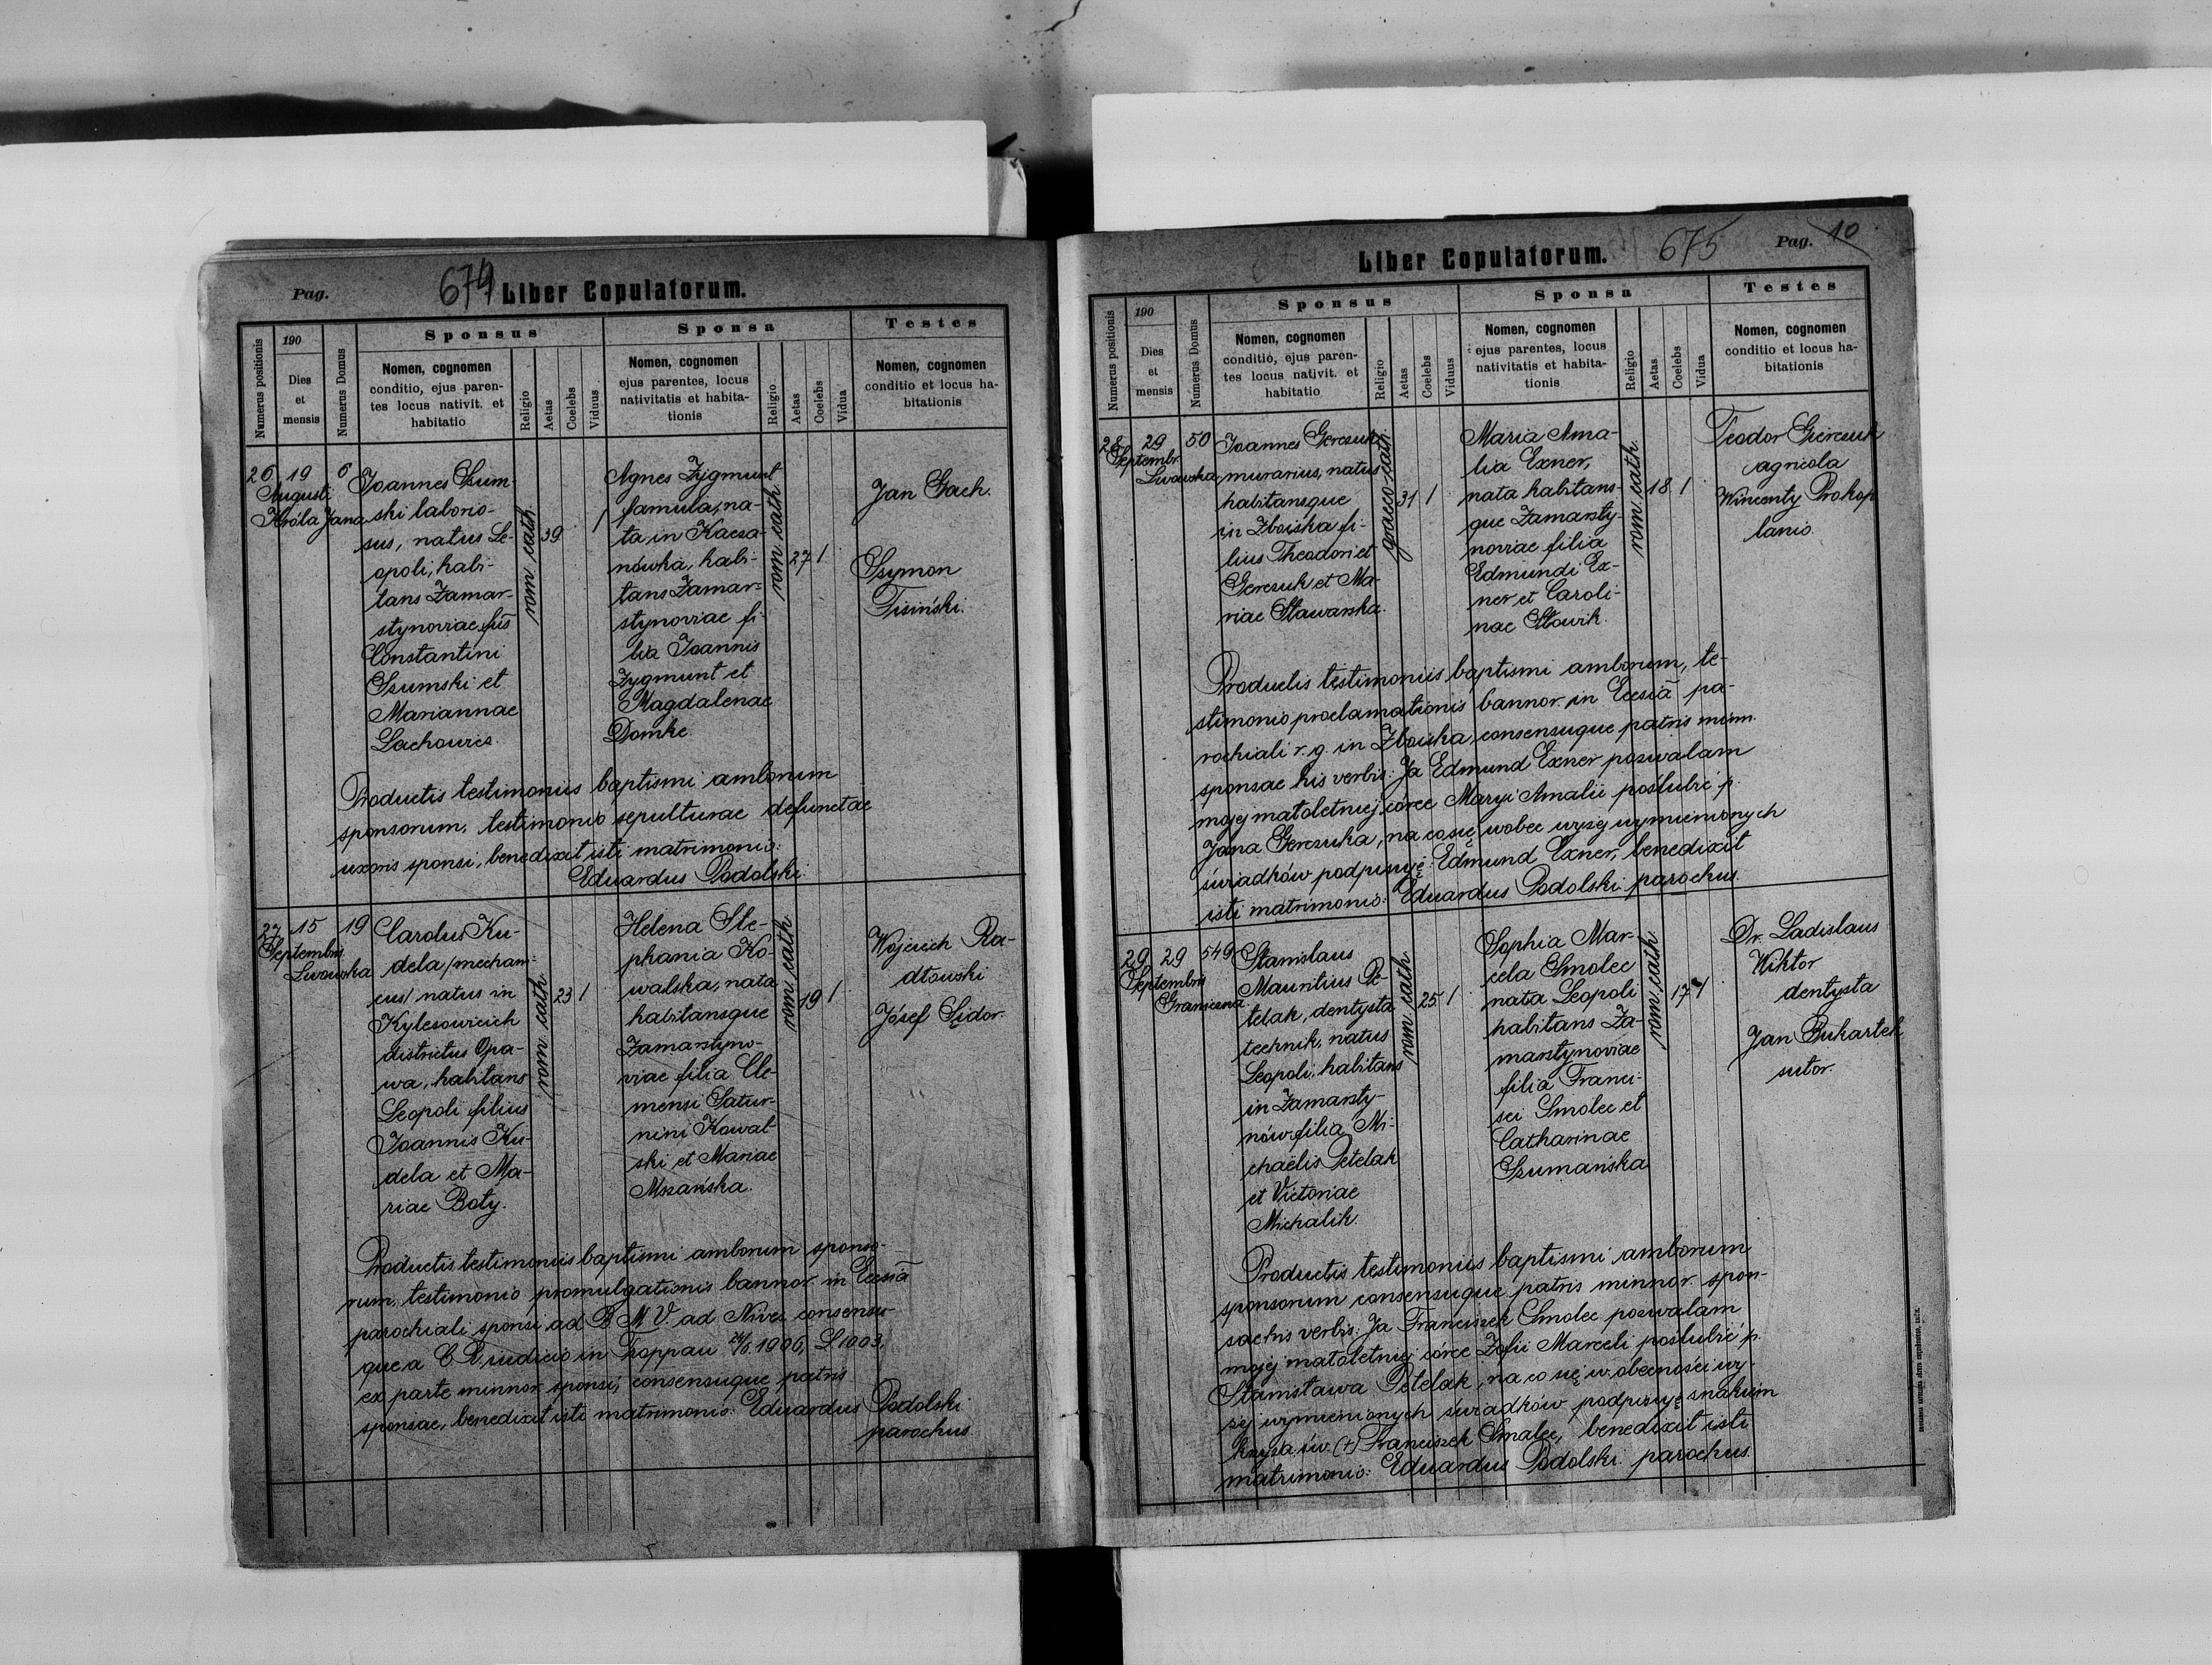 Pag.
674
Liber Copulatorum.
Numerus positionis
190
Dies
et
mensis
Numerus Domus
Sponsus
Nomen, cognomen
conditio, ejus paren-
tes locus nativit. et
habitatio
Religio
Aetas
Coelebs
Viduus
Sponsa
Nomen, cognomen
ejus parentes, locus
nativitatis et habita-
tionis
Religio
Aetas
Coelebs
Vidua
Testes
Nomen, cognomen
conditio et locus ha-
bitationis
26 19 6
Augusti
Króla Jana
Joannes Szum-
ski laborio-
sus, natus Le-
opoli, habi-
tans Zamar-
stynoviae fius
Constantini
Szumski et
Mariannae
Lachowicz.
rom. cath
39
1
Agnes Zygmunt
famula, na-
ta in Kacza-
nówka, habi-
tans Zamar-
stynoviae fi-
lia Joannis
Zygmunt et
Magdalenae
Domke
rom. cath
27 1
Jan Gach.
Szymon
Tisiński.
Productis testimoniis baptismi amborum
sponsorum, testimonio sepulturae defunctae
uxoris sponsi, benedixit isti matrimonio:
Eduardus Podolski.
27 15 19
Septembris
Lwowska
Carolus Ku-
dela /mechani-
cus/ natus in
Kylesowicich
districtus Opa-
wa, habitans
Leopoli filius
Joannis Ku-
dela et Ma-
riae Boty.
rom. cath
23 1
Helena Ste-
phania Ko-
walska, nata
habitansque
Zamarstyno-
viae filia Cle-
mensi Satur-
nini Kowal
ski et Mariae
Mszańska.
rom. cath
19 1
Wojciech Ra-
dłowski
Józef Sidor.
Productis testimoniis baptismi amborum sponso-
rum, testimonio promulgationis bannor. in Ecesia
parochiali sponsi ad B. M. V. ad Nives consensu-
que a C. R. iudicio in Troppau 1906, L. 1003.
ex parte minnor. sponsi, consensuque patris
sponsae, benedixit isti matrimonio: Eduardus Podolski
parochus
Liber Copulatorum.
675
Pag. 10
Numerus positionis
190
Dies
et
mensis
Numerus Domus
Sponsus
Nomen, cognomen
conditio, ejus paren-
tes locus nativit. et
habitatio
Religio
Aetas
Coelebs
Viduus
Sponsa
Nomen, cognomen
ejus parentes, locus
nativitatis et habita-
tionis
Religio
Aetas
Coelebs
Vidua
Testes
Nomen, cognomen
conditio et locus ha-
bitationis
28 29 50
Septembr.
Lwowska
Joannes Gerczuk
murarius, natus
habitansque
in Zboiska fi-
lius Theodori et
Gerczuk et Ma-
riae Stawarska.
graeco-cath
31 1
Maria Ama-
lia Exner,
nata habitans-
que Zamarsty-
noviae filia
Edmundi Ex-
ner et Caroli-
nae Słowik.
rom. cath
18 1
Teodor Gierczuk
agricola
Wincenty Prokop
lanio.
Productis testimoniis baptismi amborum, te-
stimonio proclamationis bannor. in Ecesiā pa-
rochiali r. g. in Zboiska, consensuque patris minn.
sponsae his verbis: Ja Edmund Exner pozwalam
mojej małoletniej córce Maryi Amalii poślubić p.
Jana Gerczuka, na co się wobec wyżej wymienionych
świadków podpisuję: Edmund Exner, benedixit
isti matrimonio: Eduardus Podolski parochus.
29 29 549
Septembris
Graniczna
Stanislaus
Mauritius Pe-
telak, dentysta
technik, natus
Leopoli, habitans
in Zamarsty-
nów filia Mi-
chaëlis Petelak
et Victoriae
Michalik.
rom. cath
25 1
Sophia Mar-
cela Smolec
nata Leopoli
habitans Za-
marstynoviae
filia Franci-
sci Smolec et
Catharinae
Szumańska
rom. cath
17 1
Dr. Ladislaus
Wiktor
dentysta
Jan Bukartek
sutor.
Productis testimoniis baptismi amborum
sponsorum consensuque patris minnor. spon-
sae his verbis: Ja Franciszek Smolec pozwalam
mojej małoletniej córce Zofii Marceli poślubić p.
Stanisława Petelak, na co się w obecności wy-
żej wymienionych świadków podpisuję znakiem
krzyża św. (+) Franciszek Smolec, benedixit isti
matrimonio: Eduardus Podolski parochus.